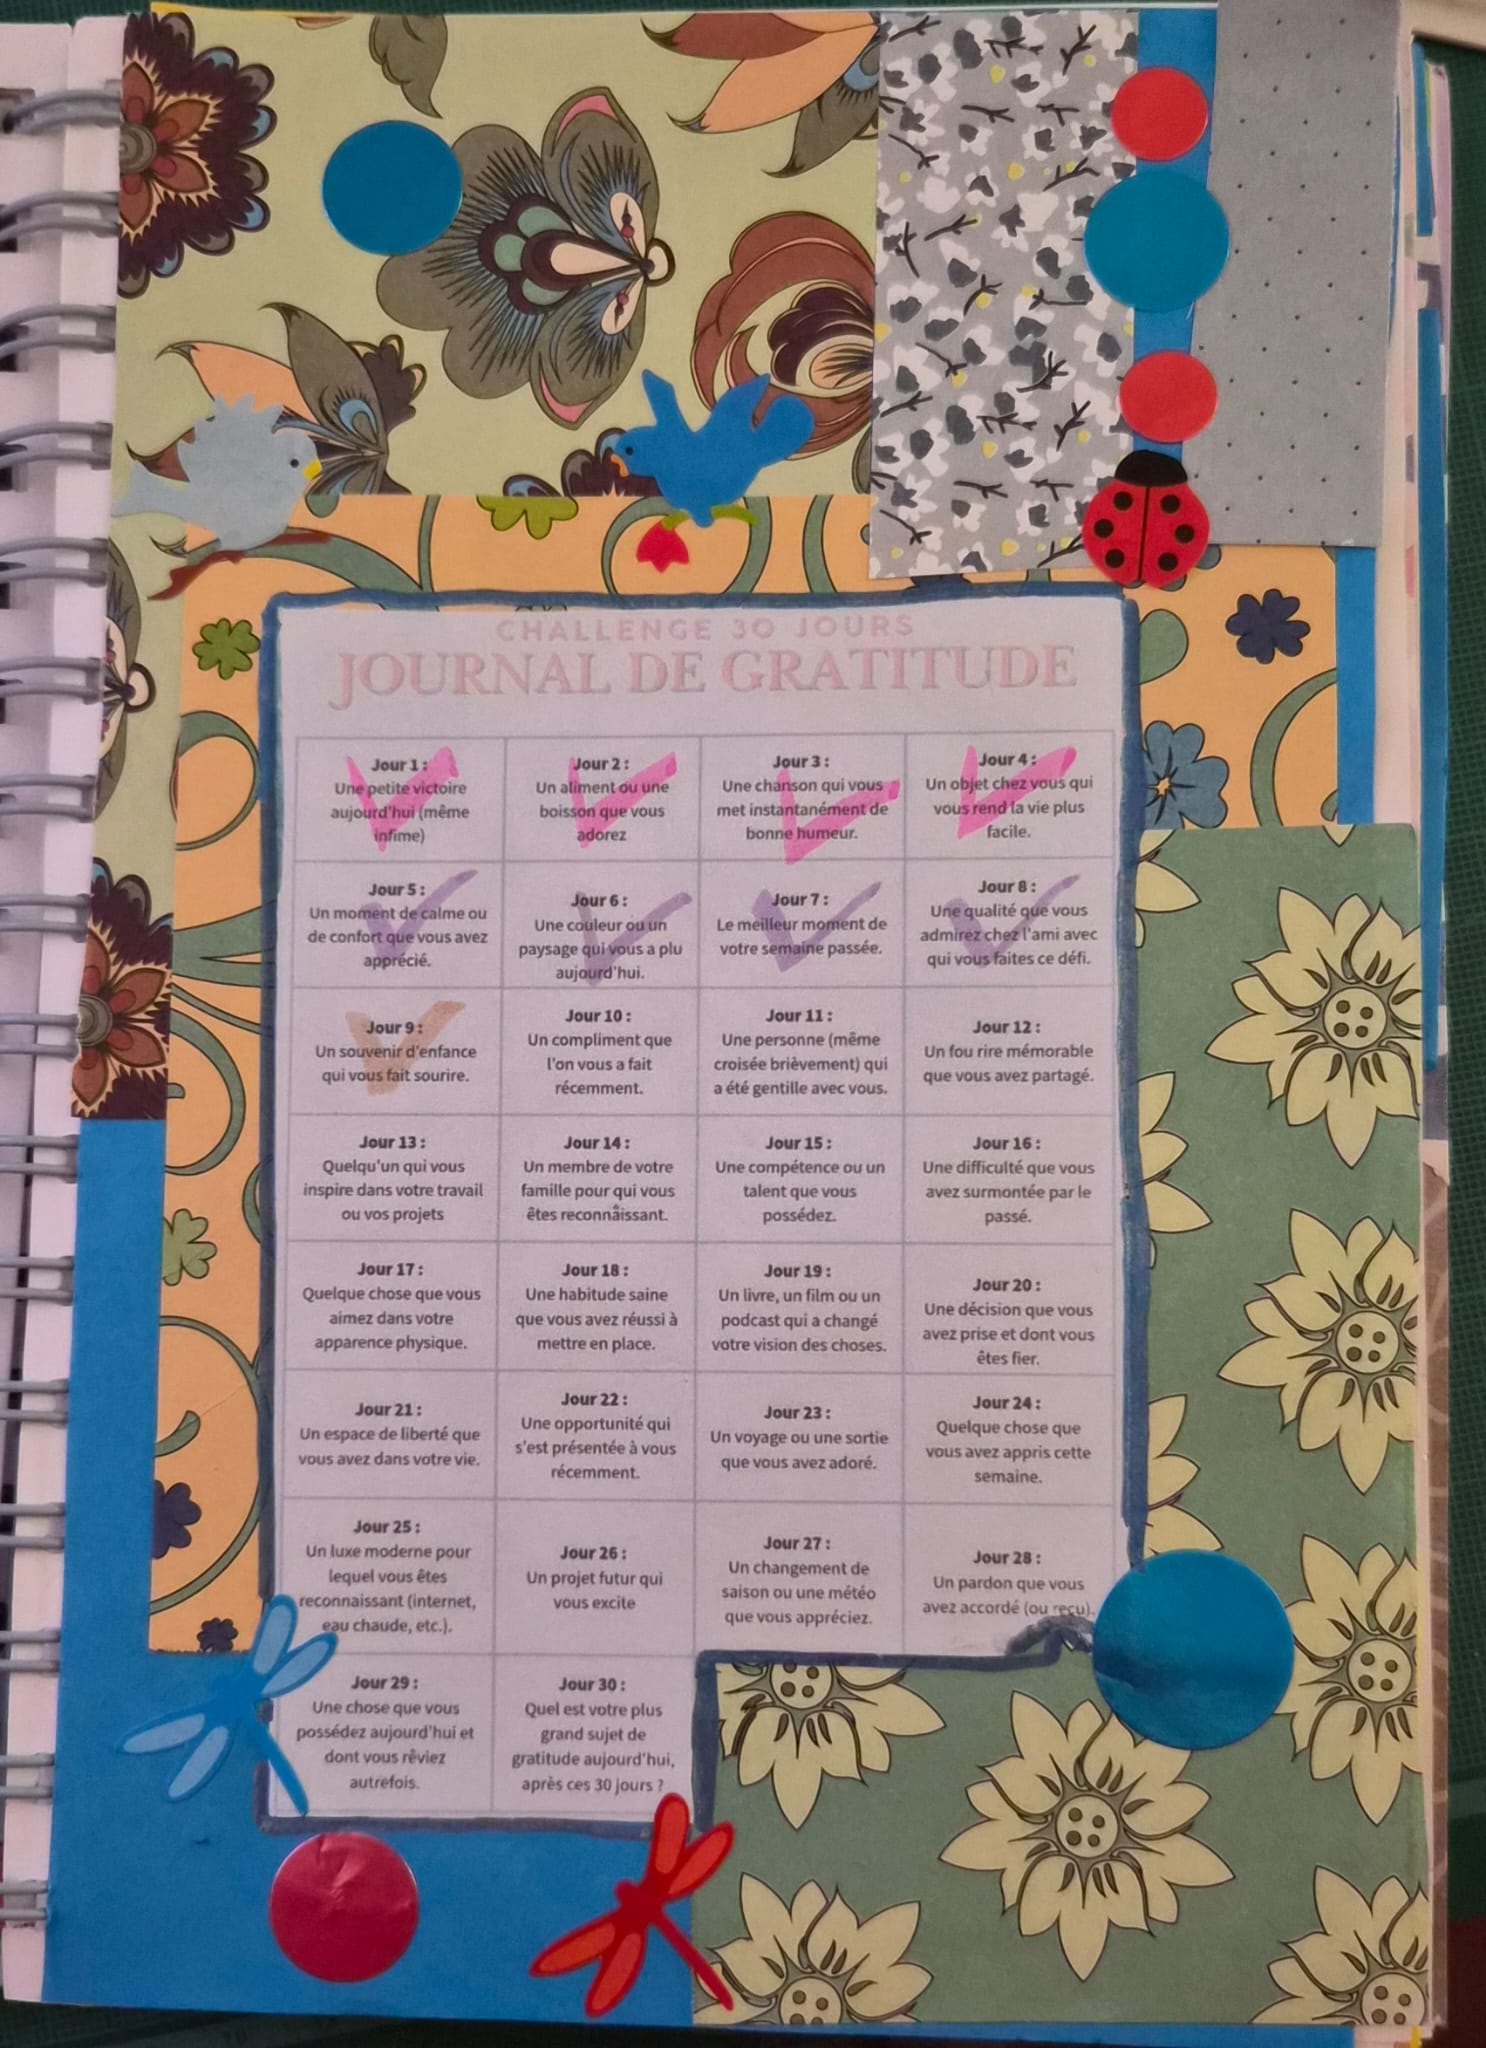 CHALLENGE 30 JOURS
JOURNAL DE GRATITUDE
Jour 1 :
Une petite victoire
aujourd'hui (même
infime)
Jour 2 :
Un aliment ou une
boisson que vous
adorez
Jour 3 :
Une chanson qui vous
met instantanément de
bonne humeur.
Jour 4 :
Un objet chez vous qui
vous rend la vie plus
facile.
Jour 5 :
Un moment de calme ou
de confort que vous avez
apprécié.
Jour 6 :
Une couleur ou un
paysage qui vous a plu
aujourd'hui.
Jour 7 :
Le meilleur moment de
votre semaine passée.
Jour 8 :
Une qualité que vous
admirez chez l'ami avec
qui vous faites ce défi.
Jour 9 :
Un souvenir d'enfance
qui vous fait sourire.
Jour 10 :
Un compliment que
l'on vous a fait
récemment.
Jour 11 :
Une personne (même
croisée brièvement) qui
a été gentille avec vous.
Jour 12 :
Un fou rire mémorable
que vous avez partagé.
Jour 13 :
Quelqu'un qui vous
inspire dans votre travail
ou vos projets
Jour 14 :
Un membre de votre
famille pour qui vous
êtes reconnaissant.
Jour 15 :
Une compétence ou un
talent que vous
possédez.
Jour 16 :
Une difficulté que vous
avez surmontée par le
passé.
Jour 17 :
Quelque chose que vous
aimez dans votre
apparence physique.
Jour 18 :
Une habitude saine
que vous avez réussi à
mettre en place.
Jour 19 :
Un livre, un film ou un
podcast qui a changé
votre vision des choses.
Jour 20 :
Une décision que vous
avez prise et dont vous
êtes fier.
Jour 21 :
Un espace de liberté que
vous avez dans votre vie.
Jour 22 :
Une opportunité qui
s'est présentée à vous
récemment.
Jour 23 :
Un voyage ou une sortie
que vous avez adoré.
Jour 24 :
Quelque chose que
vous avez appris cette
semaine.
Jour 25 :
Un luxe moderne pour
lequel vous êtes
reconnaissant (internet,
eau chaude, etc.).
Jour 26 :
Un projet futur qui
vous excite
Jour 27 :
Un changement de
saison ou une météo
que vous appréciez.
Jour 28 :
Un pardon que vous
avez accordé (ou reçu).
Jour 29 :
Une chose que vous
possédez aujourd'hui et
dont vous rêviez
autrefois.
Jour 30 :
Quel est votre plus
grand sujet de
gratitude aujourd'hui,
après ces 30 jours ?